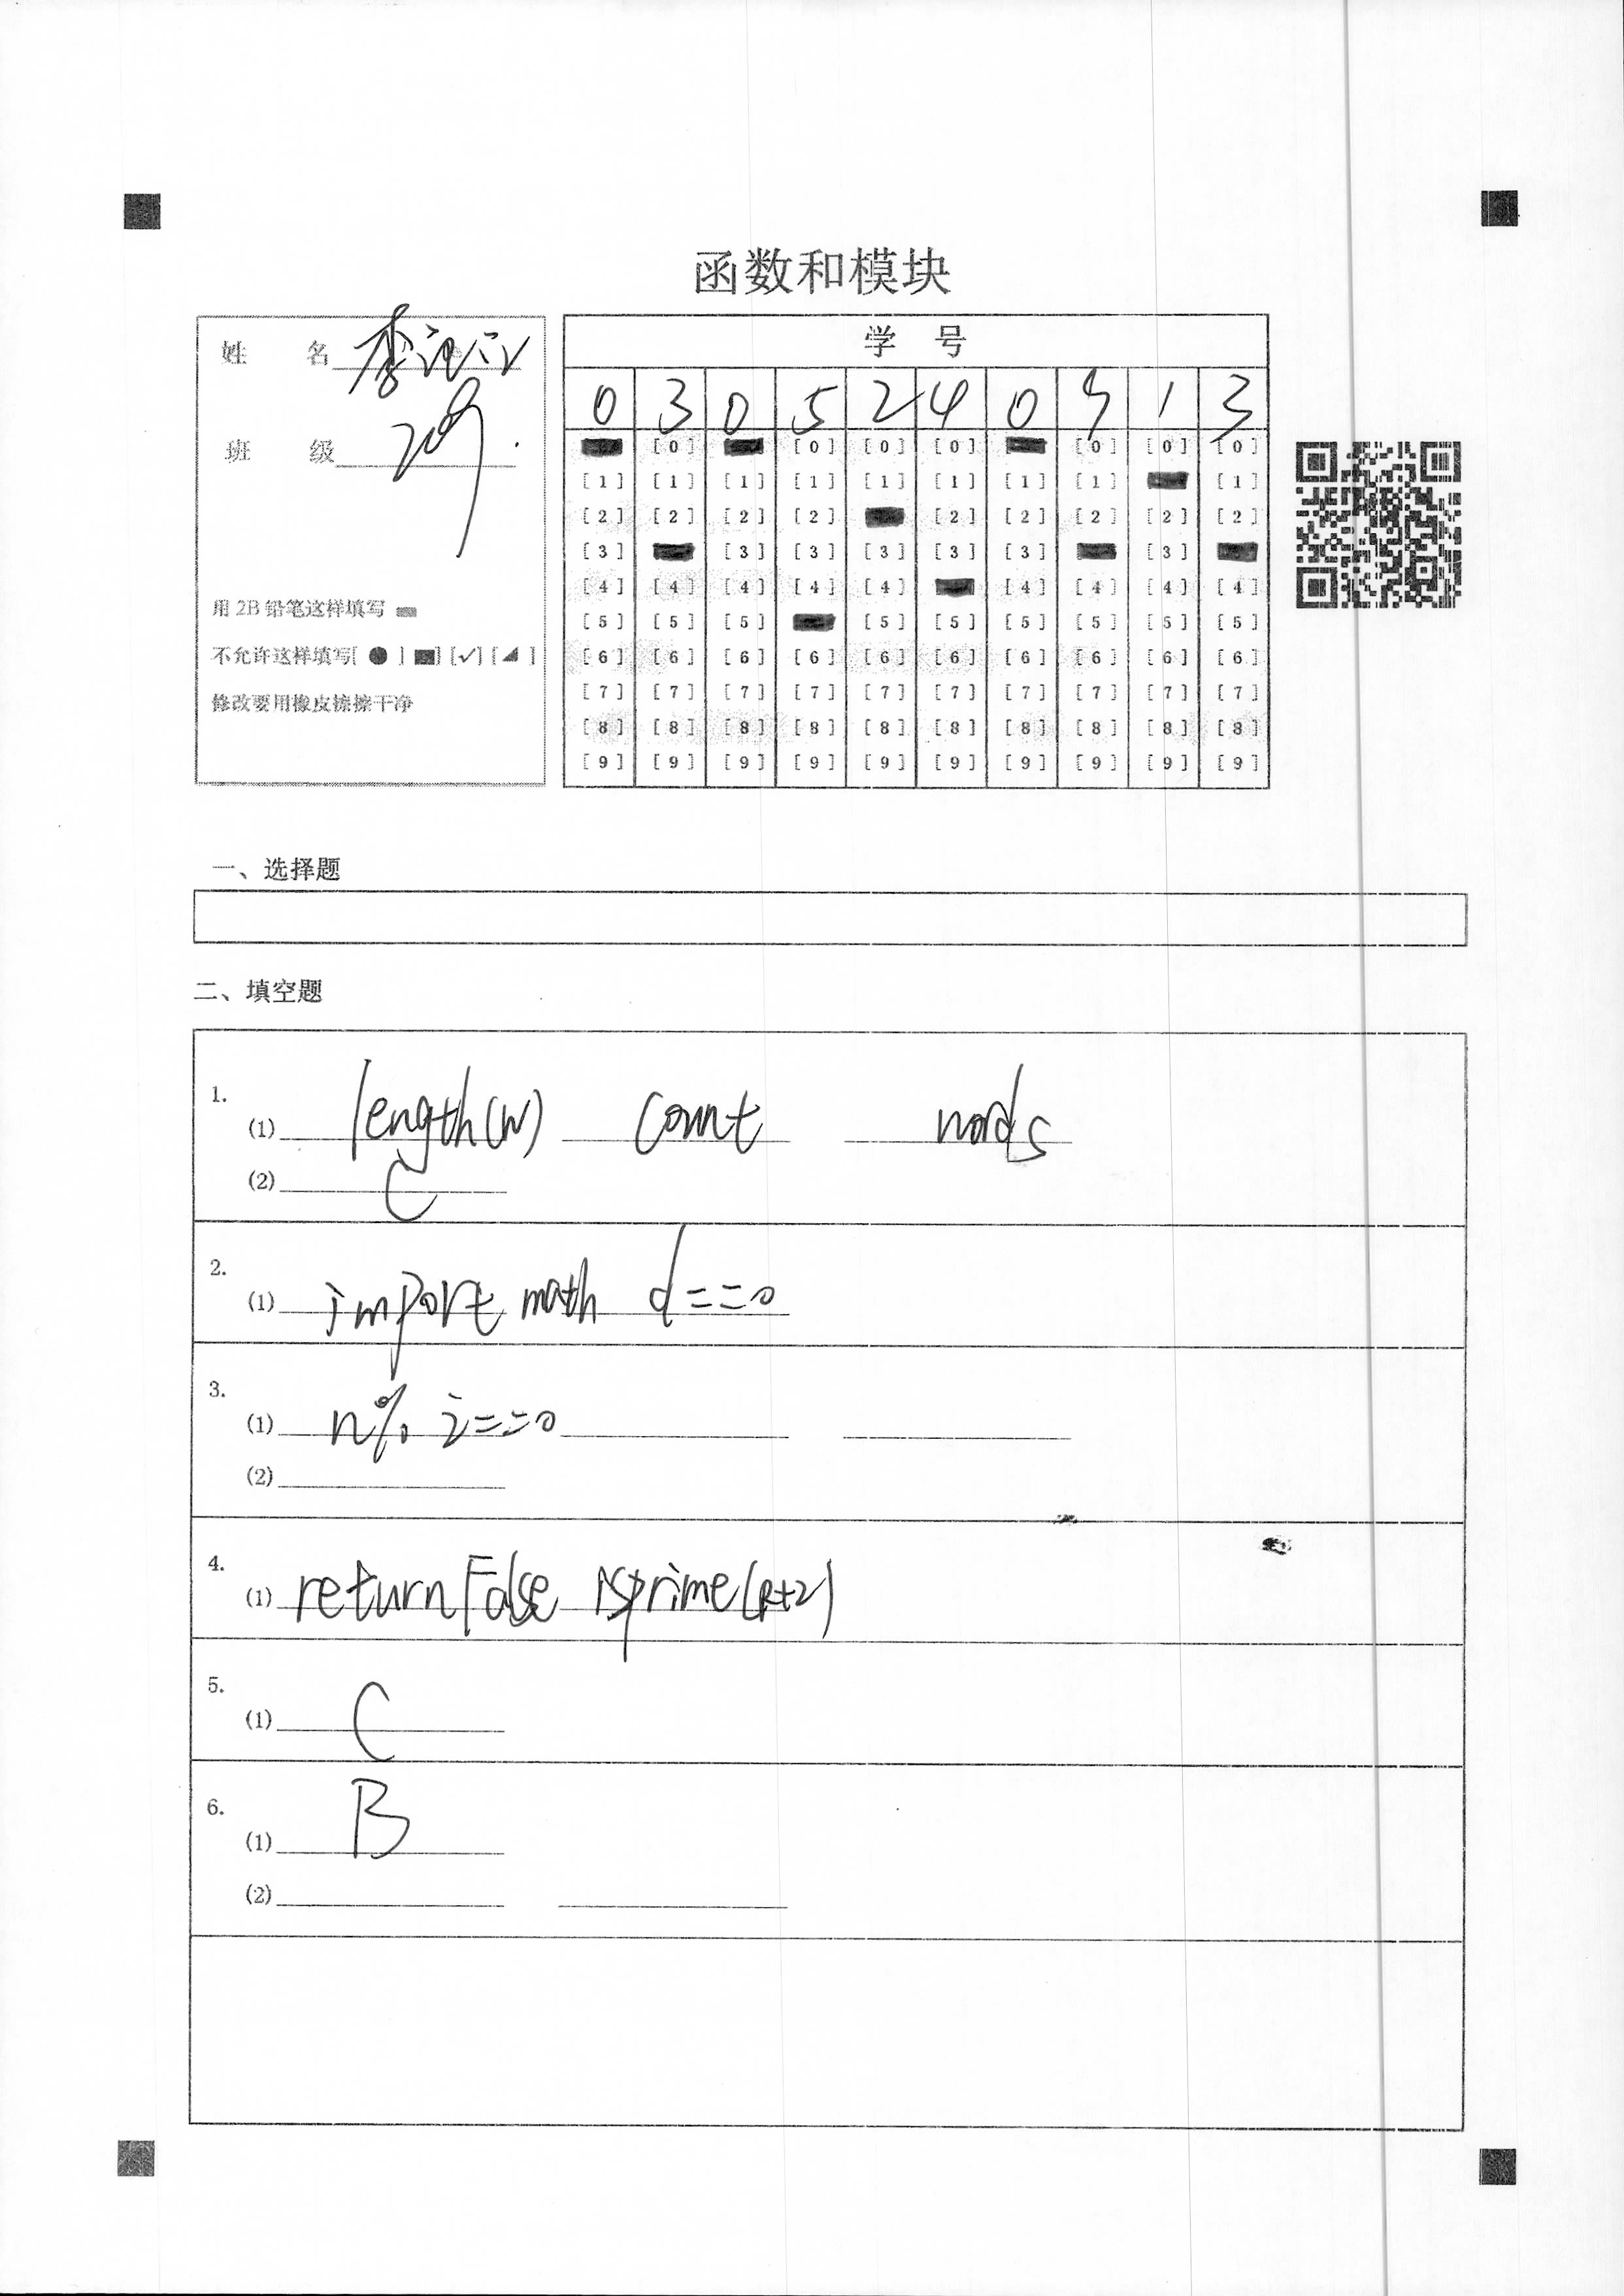 函数和模块
姓 名 李
班 级
用 2B 铅笔这样填写
不允许这样填写[ ● ] [■] [✓] [◢ ]
修改要用橡皮擦擦干净
学 号
0 3 0 5 2 4 0 1 3
[0] [0] [0] [0] [0] [0] [0]
[1] [1] [1] [1] [1] [1] [1] [1] [1]
[2] [2] [2] [2] [2] [2] [2] [2] [2]
[3] [3] [3] [3] [3] [3] [3]
[4] [4] [4] [4] [4] [4] [4] [4] [4]
[5] [5] [5] [5] [5] [5] [5] [5] [5]
[6] [6] [6] [6] [6] [6] [6] [6] [6] [6]
[7] [7] [7] [7] [7] [7] [7] [7] [7] [7]
[8] [8] [8] [8] [8] [8] [8] [8] [8] [8]
[9] [9] [9] [9] [9] [9] [9] [9] [9] [9]
一、选择题
二、填空题
1.
(1) length(w) count words
(2) C
2.
(1) import math d==0
3.
(1) n% i==0
(2)
4.
(1) return False isprime(k+2)
5.
(1) C
6.
(1) B
(2)